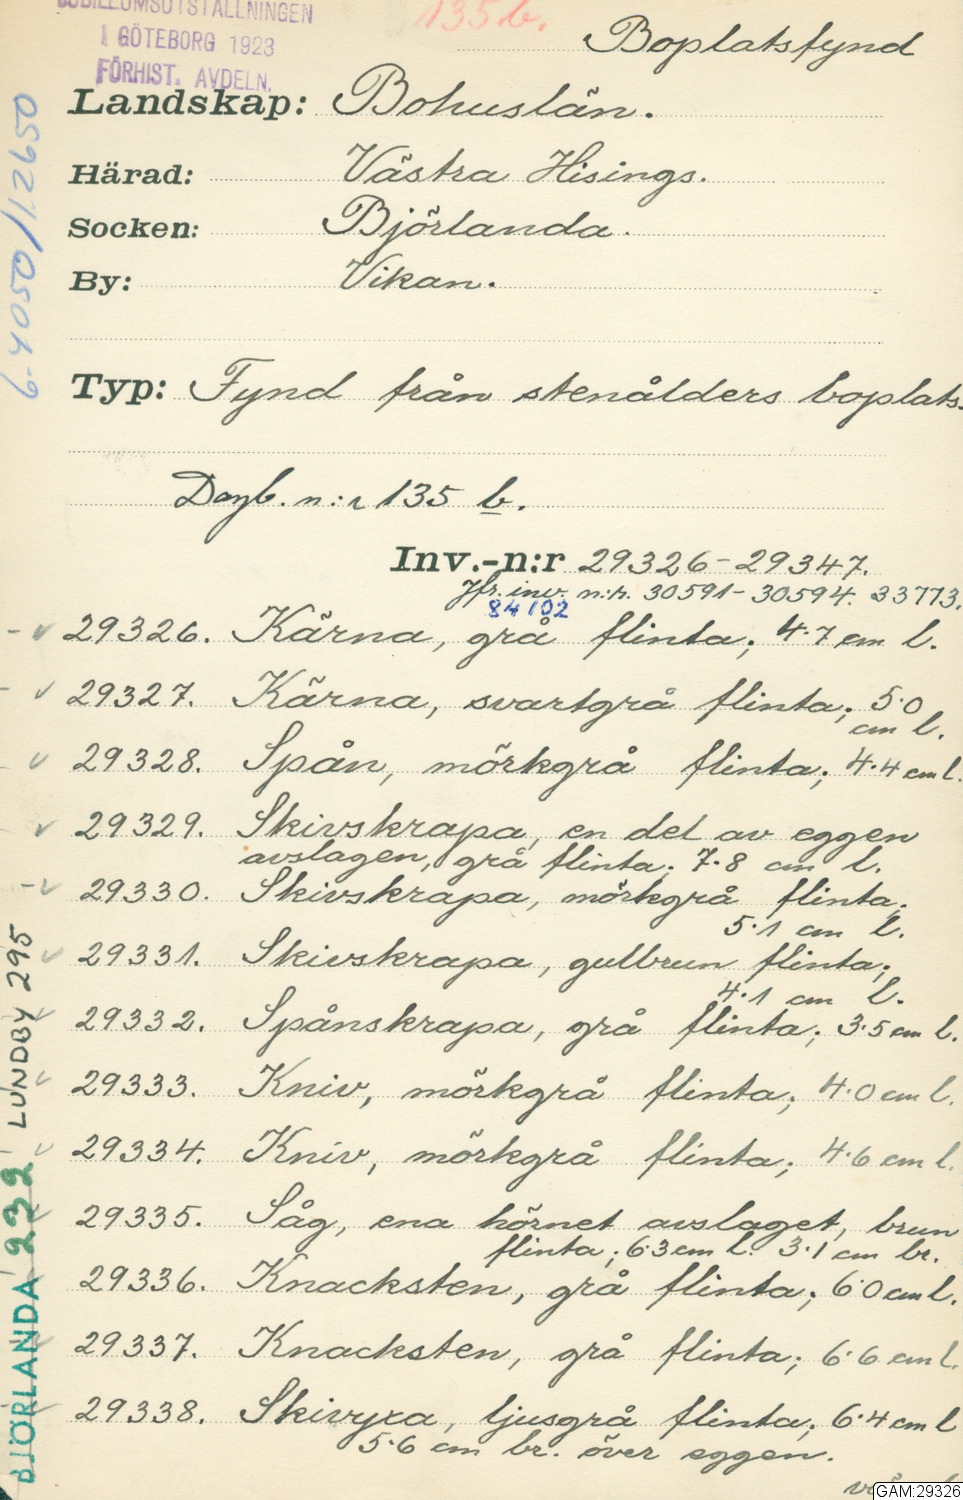 JUBILEUMSUTSTÄLLNINGEN
I GÖTEBORG 1923
FÖRHIST. AVDELN.
135 b.
Boplatsfynd
Landskap: Bohuslän.
Härad: Västra Hisings.
Socken: Björlanda.
By: Vikan.
Typ: Fynd från stenålders boplats.
Dagb. n:r 135 b.
Inv.-n:r 29326-29347.
Jfr. inv. n:r. 30591-30594. 33773.
84102
29326. Kärna, grå flinta; 4.7 cm l.
29327. Kärna, svartgrå flinta; 5.0
cm l.
29328. Spån, mörkgrå flinta; 4.4 cm l.
29329. Skivskrapa, en del av eggen
avslagen, grå flinta; 7.8 cm l.
29330. Skivskrapa, mörkgrå flinta;
5.1 cm l.
29331. Skivskrapa, gulbrun flinta;
4.1 cm l.
29332. Spånskrapa, grå flinta; 3.5 cm l.
29333. Kniv, mörkgrå flinta; 4.0 cm l.
29334. Kniv, mörkgrå flinta; 4.6 cm l.
29335. Såg, ena hörnet avslaget, brun
flinta; 6.3 cm l. 3.1 cm br.
29336. Knacksten, grå flinta; 6.0 cm l.
29337. Knacksten, grå flinta; 6.6 cm l.
29338. Skivyxa, ljusgrå flinta; 6.4 cm l
5.6 cm br. över eggen.
6-4050/12650
LUNDBY 295
BJÖRLANDA 232
GAM:29326